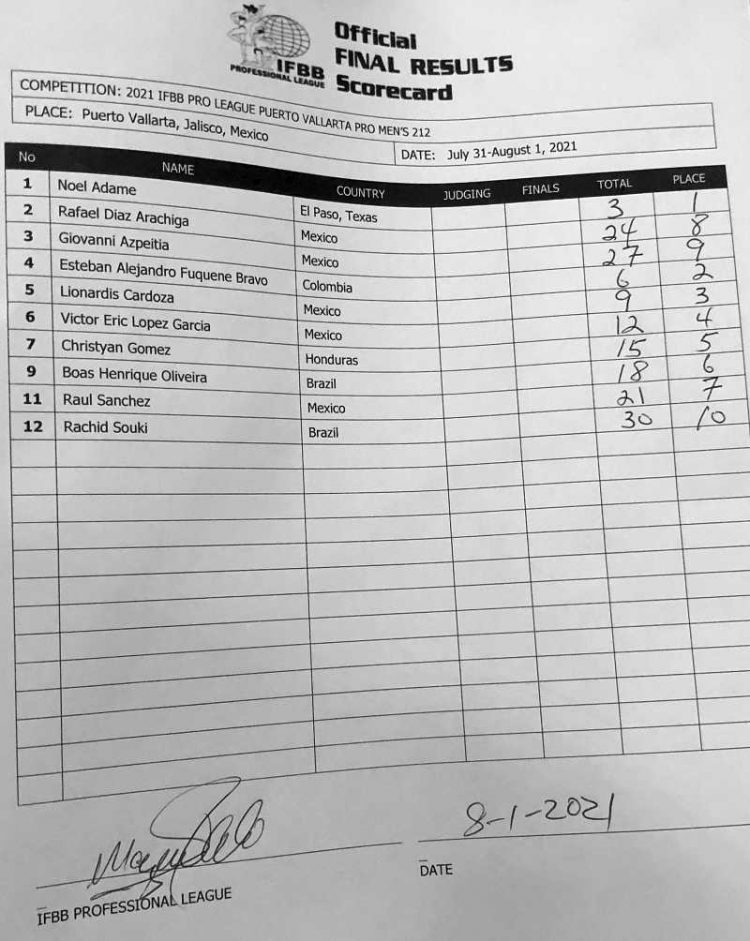 Official
FINAL RESULTS
Scorecard
IFBB
PROFESSIONAL LEAGUE
COMPETITION: 2021 IFBB PRO LEAGUE PUERTO VALLARTA PRO MEN'S 212
PLACE: Puerto Vallarta, Jalisco, Mexico DATE: July 31-August 1, 2021
No NAME COUNTRY JUDGING FINALS TOTAL PLACE
1 Noel Adame El Paso, Texas 3 1
2 Rafael Diaz Arachiga Mexico 24 8
3 Giovanni Azpeitia Mexico 27 9
4 Esteban Alejandro Fuquene Bravo Colombia 6 2
5 Lionardis Cardoza Mexico 9 3
6 Victor Eric Lopez Garcia Mexico 12 4
7 Christyan Gomez Honduras 15 5
9 Boas Henrique Oliveira Brazil 18 6
11 Raul Sanchez Mexico 21 7
12 Rachid Souki Brazil 30 10
8-1-2021
IFBB PROFESSIONAL LEAGUE DATE